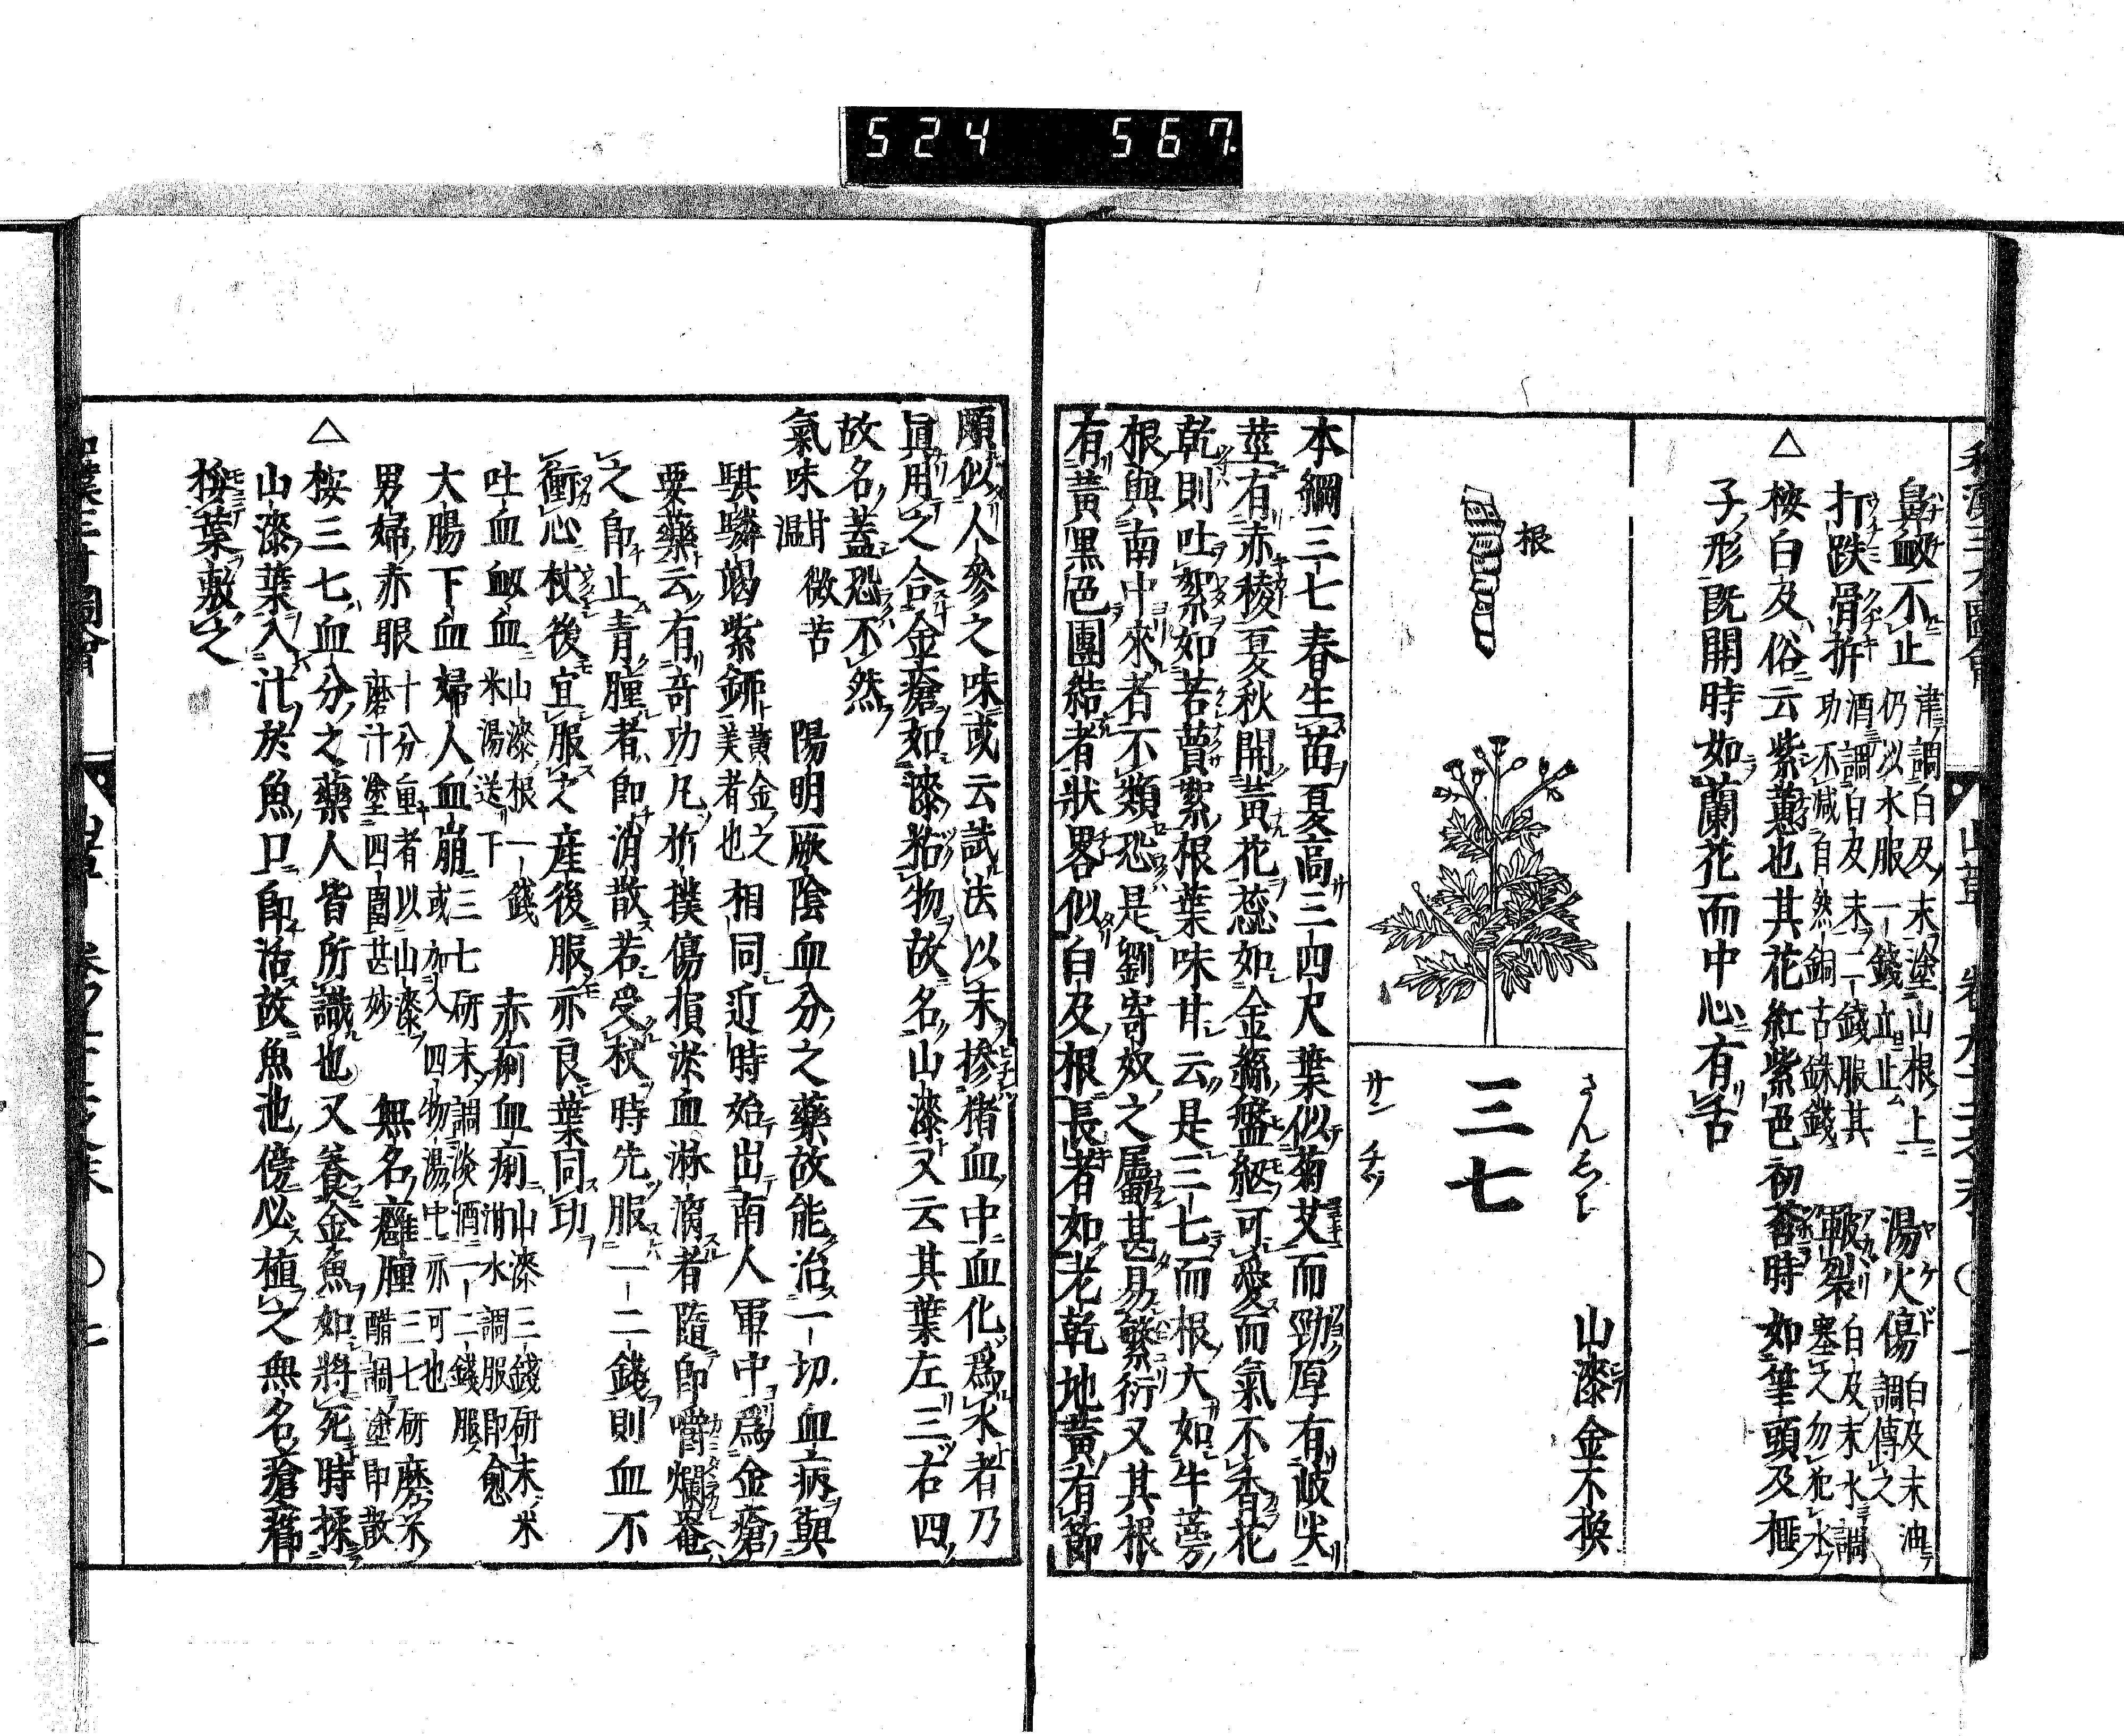 524 567
鼻衂不止 津調白及末塗山根上
仍以水服一錢立止
湯火傷 白及末油
調傅之
打跌骨折 酒調白及末二錢服其
功不減自然銅古銖錢
皸裂 白及末水調
塞之勿犯水
△
按白及俗云紫蕙也其花紅紫色初莟時如筆頭及榧
子形既開時如蘭花而中心有舌
根
三七
さんしち
サン チツ
山漆 金不換
本綱三七春生苗夏高三四尺葉似菊艾而勁厚有岐尖
莖有赤稜夏秋開黃花蕊如金絲盤紐可愛而氣不香花
乾則吐絮如苦蕒絮根葉味甘云是三七而根大如牛蒡
根與南中來者不類恐是劉寄奴之屬甚易繁衍又其根
有黃黑色團結者狀畧似白及根長者如老乾地黃有節
頗似人參之味或云試法以末摻猪血中血化爲水者乃
眞用之合金瘡如漆粘物故名山漆又云其葉左三右四
故名蓋恐不然
氣味 甘微苦
溫
陽明厥陰血分之藥故能治一切血病與
騏驎竭紫鉚 黃金之
美者也
相同近時始出南人軍中爲金瘡
要藥云有奇功凡杖撲傷損淤血淋漓者隨卽嚼爛罨
之卽止青腫者卽消散若受杖時先服一二錢則血不
衝心杖後宜服之產後服亦良葉同功
吐血衂血 山漆根一錢
米湯送下
赤痢血痢 山漆三錢研末米
泔水調服卽愈
大腸下血婦人血崩 三七研末調淡酒一二錢服
或加入四物湯中亦可也
男婦赤眼 十分重者以山漆
磨汁塗四圍甚妙
無名癰腫 三七研磨米
醋調塗卽散
△
按三七血分之藥人皆所識也又養金魚如將死時揉
山漆葉入汁於魚口卽活故魚池傍必植之無名瘡癤
挼葉敷之